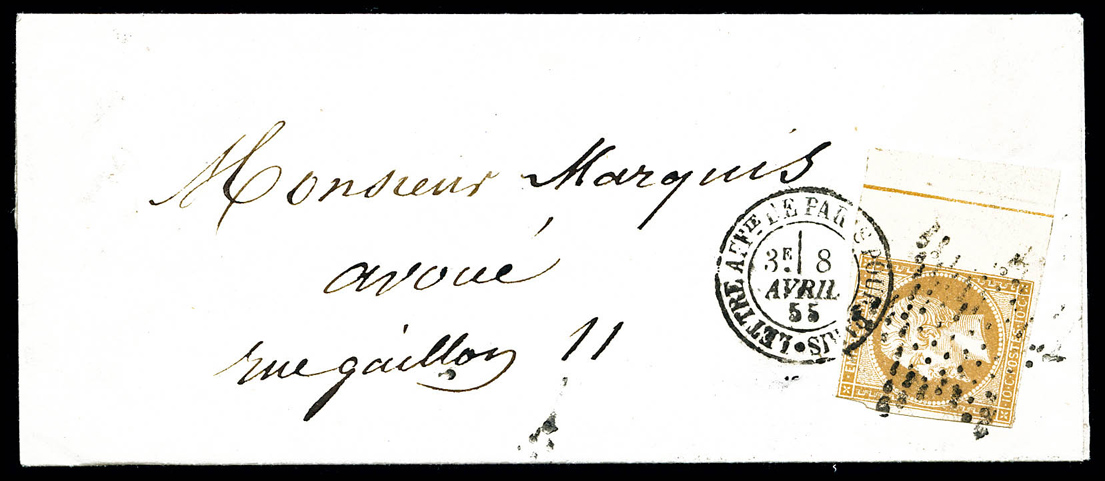 Monsieur Marquis
avoué
rue gaillon 11
LETTRE AFFIE DE PARIS POUR PARIS
3E 8
AVRIL
55
10·C·POSTES·10·C